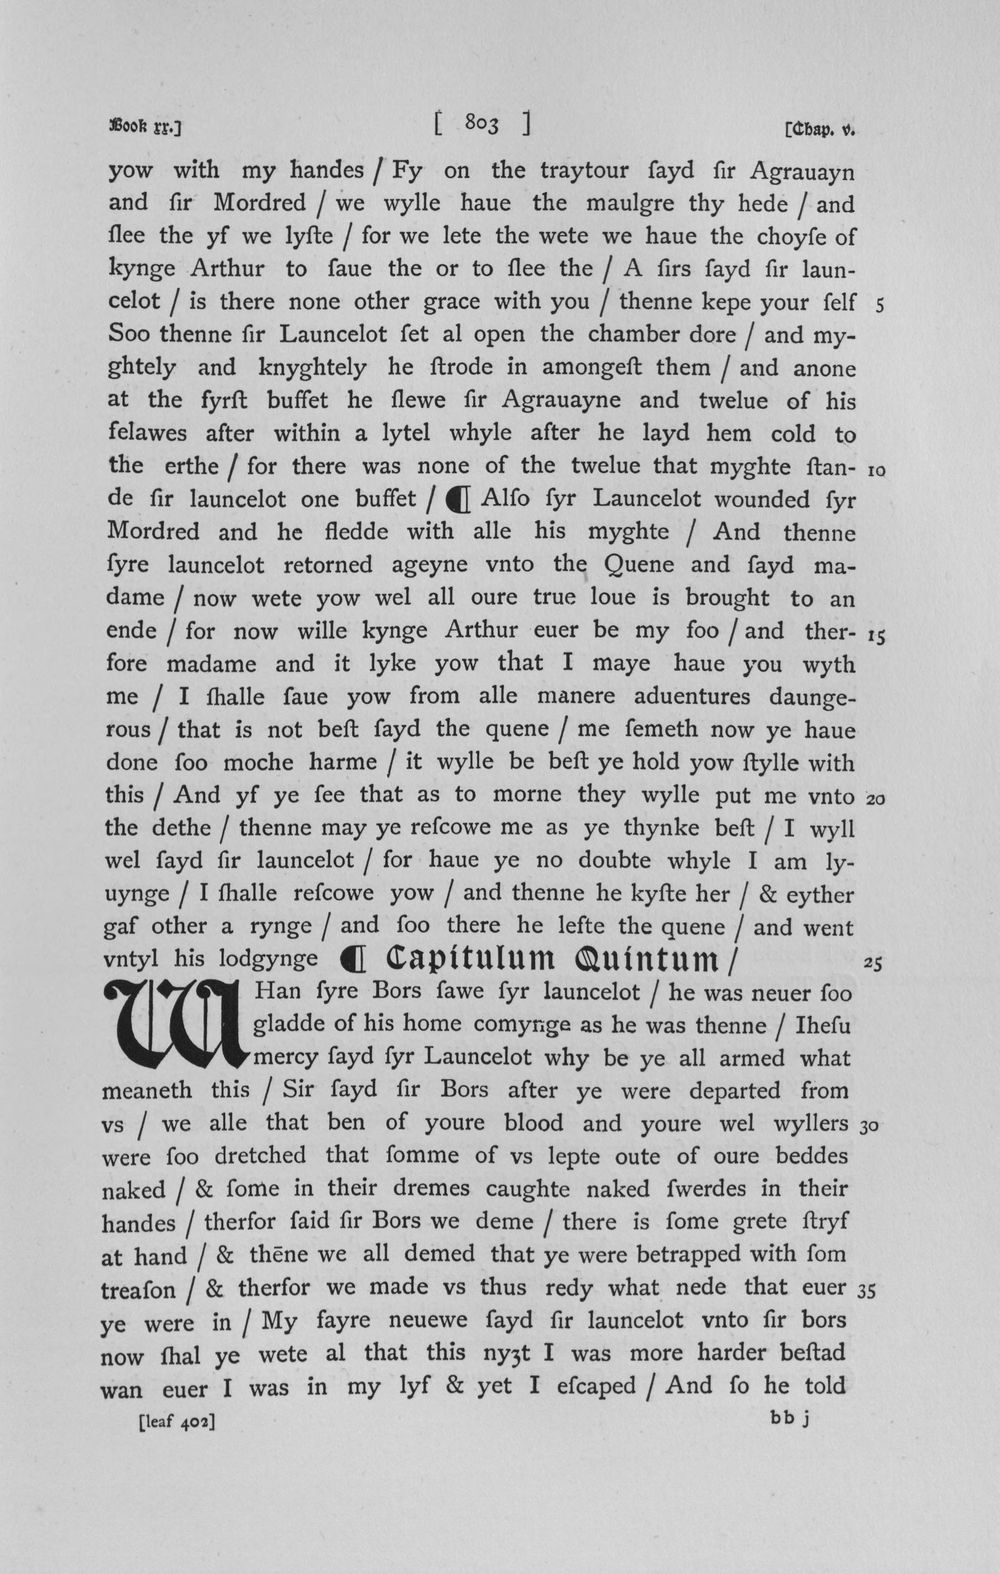 Book xx.] [ 803 ] [Chap. v.
yow with my handes / Fy on the traytour ſayd ſir Agrauayn
and ſir Mordred / we wylle haue the maulgre thy hede / and
ſlee the yf we lyſte / for we lete the wete we haue the choyſe of
kynge Arthur to ſaue the or to ſlee the / A ſirs ſayd ſir laun-
celot / is there none other grace with you / thenne kepe your ſelf 5
Soo thenne ſir Launcelot ſet al open the chamber dore / and my-
ghtely and knyghtely he ſtrode in amongeſt them / and anone
at the fyrſt buffet he ſlewe ſir Agrauayne and twelue of his
felawes after within a lytel whyle after he layd hem cold to
the erthe / for there was none of the twelue that myghte ſtan- 10
de ſir launcelot one buffet / ¶ Alſo ſyr Launcelot wounded ſyr
Mordred and he fledde with alle his myghte / And thenne
ſyre launcelot retorned ageyne vnto the Quene and ſayd ma-
dame / now wete yow wel all oure true loue is brought to an
ende / for now wille kynge Arthur euer be my foo / and ther- 15
fore madame and it lyke yow that I maye haue you wyth
me / I ſhalle ſaue yow from alle manere aduentures daunge-
rous / that is not beſt ſayd the quene / me ſemeth now ye haue
done ſoo moche harme / it wylle be beſt ye hold yow ſtylle with
this / And yf ye ſee that as to morne they wylle put me vnto 20
the dethe / thenne may ye reſcowe me as ye thynke beſt / I wyll
wel ſayd ſir launcelot / for haue ye no doubte whyle I am ly-
uynge / I ſhalle reſcowe yow / and thenne he kyſte her / & eyther
gaf other a rynge / and ſoo there he lefte the quene / and went
vntyl his lodgynge ¶ Capitulum Quintum / 25
WHan ſyre Bors ſawe ſyr launcelot / he was neuer ſoo
gladde of his home comynge as he was thenne / Iheſu
mercy ſayd ſyr Launcelot why be ye all armed what
meaneth this / Sir ſayd ſir Bors after ye were departed from
vs / we alle that ben of youre blood and youre wel wyllers 30
were ſoo dretched that ſomme of vs lepte oute of oure beddes
naked / & ſome in their dremes caughte naked ſwerdes in their
handes / therfor ſaid ſir Bors we deme / there is ſome grete ſtryf
at hand / & thēne we all demed that ye were betrapped with ſom
treaſon / & therfor we made vs thus redy what nede that euer 35
ye were in / My fayre neuewe ſayd ſir launcelot vnto ſir bors
now ſhal ye wete al that this nyȝt I was more harder beſtad
wan euer I was in my lyf & yet I eſcaped / And ſo he told
[leaf 402] bb j